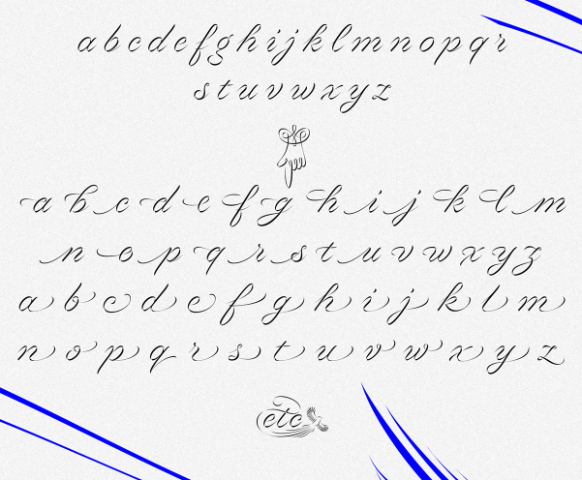 a b c d e f g h i j k l m n o p q r
s t u v w x y z
a b c d e f g h i j k l m
n o p q r s t u v w x y z
a b c d e f g h i j k l m
n o p q r s t u v w x y z
etc